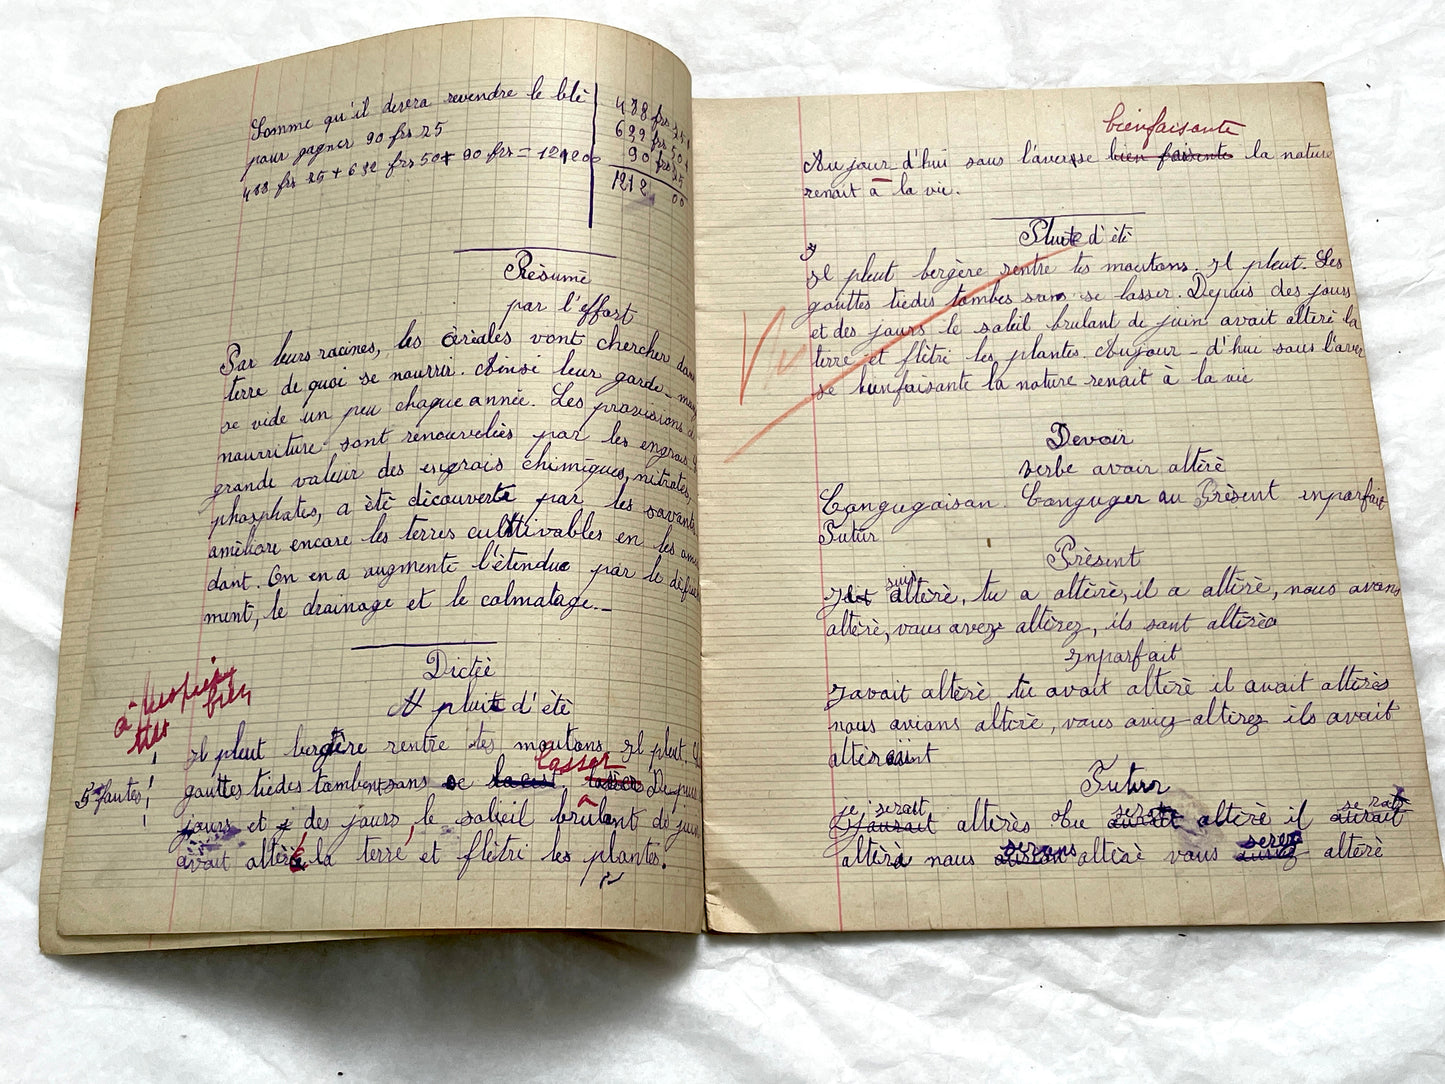 Somme qu'il devra revendre le blé
pour gagner 90 frs 25
488 frs 25 + 632 frs 50 + 90 frs = 1212 00
488 frs 25 +
639 frs 50 +
90 frs 25
1212 00
Résumé
par l'effort
Par leurs racines, les céréales vont chercher dans
terre de quoi se nourrir. Ainsi leur garde-mang
se vide un peu chaque année. Les provisions de
nourriture sont renouvelées par les engrais.
grande valeur des engrais chimiques, nitrates,
phosphates, a été découverte par les savants
améliore encore les terres cultivables en les amen
dant. On en a augmenté l'étendue par le défriche
ment, le drainage et le colmatage._
Dictée
A pluie d'été
à
très bien
Il pleut bergère rentre tes moutons Il pleut.
lasser
5 fautes gouttes tièdes tombent sans se Depuis
jours et des jours, le soleil brûlant de juin
avait altéré la terre et flétri les plantes.
bienfaisante
Aujour d'hui sous l'averse bien faisente la nature
renait à la vie.
Pluie d'été
Il pleut bergère rentre tes moutons. Il pleut. Les
gouttes tièdes tombes sans se lasser. Depuis des jours
et des jours le soleil brulant de juin avait altéré la
terre et flétri les plantes. Aujour-d'hui sous l'aver
se bienfaisante la nature renait à la vie
Vu
Devoir
verbe avoir altéré
Congugaison. Conguger au Présent inparfait
Futur
Présent
suis
altéré, tu a altéré, il a altéré, nous avons
altéré, vous avez altérez, ils sont altérés
Inparfait
J'avait altéré tu avait altéré il avait altérés
nous avions altéré, vous aviez altérez ils avait
altéraient
Futur
je serait serat se rat
J'aurait altérés Tu altéré il aurait
serons serez
altéré nous altéré vous aurez altéré